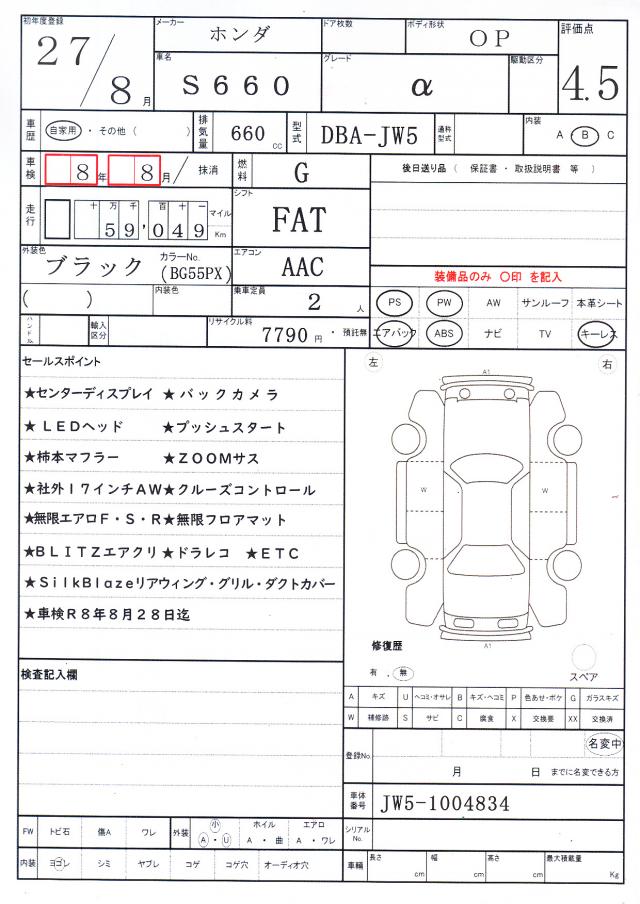 初年度登録 メーカー ホンダ ドア枚数 ボディ形状 OP 評価点
27/8月 車名 S660 グレード α 駆動区分 4.5
車歴 自家用・その他( ) 排気量 660cc 型式 DBA-JW5 通称型式 内装 A・B・C
車検 8年 8月/ 抹消 燃料 G 後日送り品(保証書・取扱説明書 等)
走行 十万千百十一 59,049 マイル Km シフト FAT
外装色 ブラック カラーNo. (BG55PX) エアコン AAC
装備品のみ 〇印 を記入
( ) 内装色 乗車定員 2人
PS PW AW サンルーフ 本革シート
ハンドル 輸入区分 リサイクル料 7790円・預託無
エアバック ABS ナビ TV キーレス
セールスポイント
★センターディスプレイ ★バックカメラ
★LEDヘッド ★プッシュスタート
★柿本マフラー ★ZOOMサス
★社外17インチAW★クルーズコントロール
★無限エアロF・S・R★無限フロアマット
★BLITZエアクリ★ドラレコ ★ETC
★SilkBlazeリアウィング・グリル・ダクトカバー
★車検R8年8月28日迄
左 右
A1
W W
A1
修復歴
有・無
スペア
検査記入欄
A キズ U ヘコミ・オサレ B キズ・ヘコミ P 色あせ・ボケ G ガラスキズ
W 補修跡 S サビ C 腐食 X 交換要 XX 交換済
登録No. 名変中
月 日 までに名変できる方
車体番号 JW5-1004834
シリアルNo.
FW トビ石 傷A ワレ 外装 小 A・U ホイル A・曲 エアロ A・ワレ
内装 ヨゴレ シミ ヤブレ コゲ コゲ穴 オーディオ穴
車輌 長さ cm 幅 cm 高さ cm 最大積載量 Kg